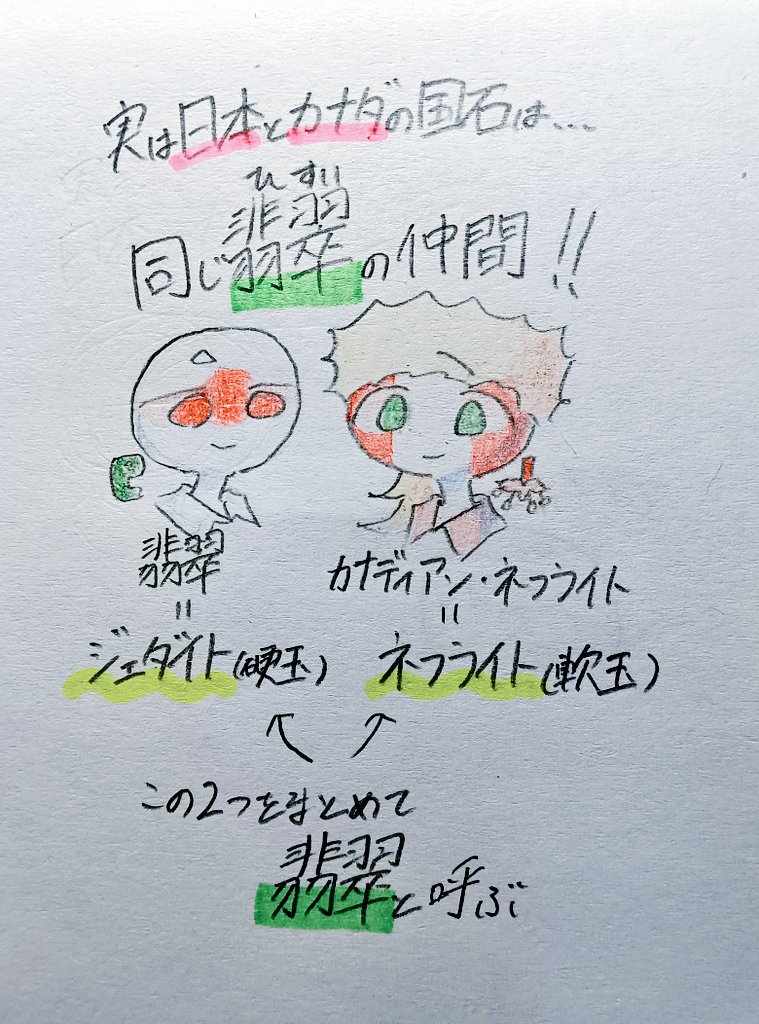 実は日本とカナダの国石は…
ひすい
同じ翡翠の仲間!!
翡翠
=
ジェダイト(硬玉)
カナディアン・ネフライト
=
ネフライト(軟玉)
この2つをまとめて
翡翠と呼ぶ